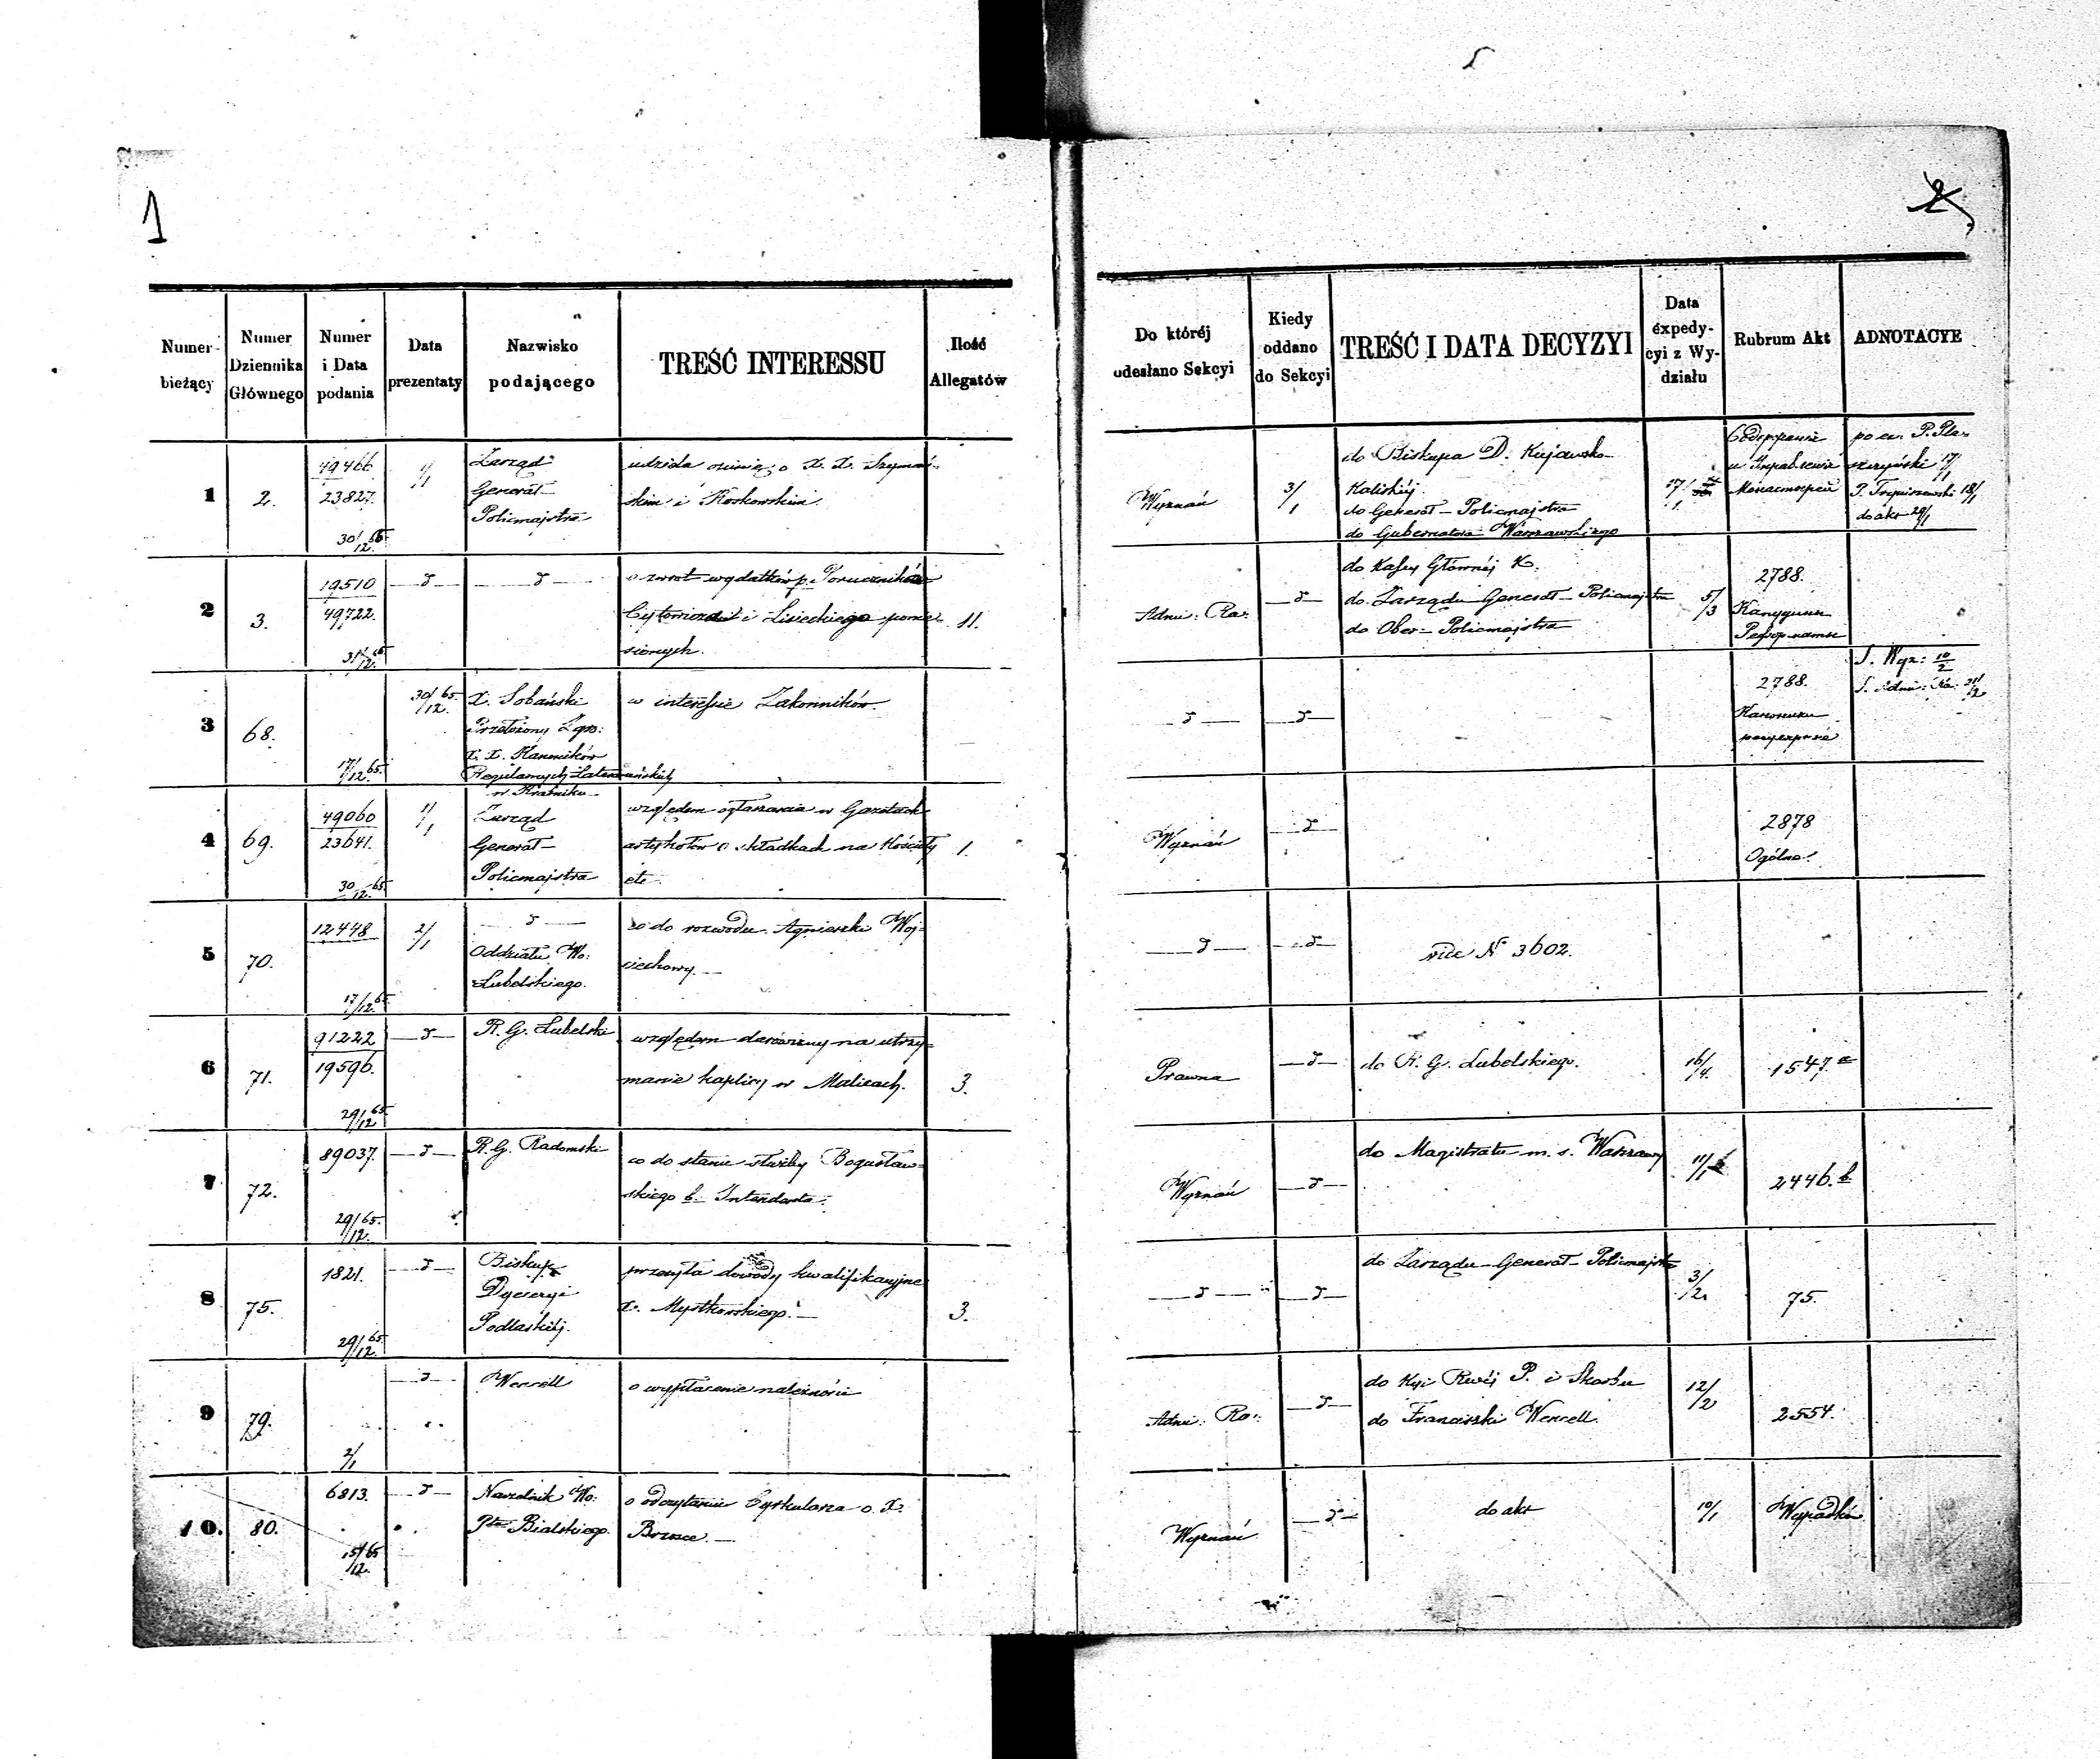 1
2
Numer bieżący
Numer Dziennika Głównego
Numer i Data podania
Data prezentaty
Nazwisko podającego
TREŚĆ INTERESSU
Ilość Allegatów
Do której odesłano Sekcyi
Kiedy oddano do Sekcyi
TREŚĆ I DATA DECYZYI
Data expedycyi z Wydziału
Rubrum Akt
ADNOTACYE
1
2.
49466
23827.
30/12 65
1/1
Zarząd
Generał-
Policmajstra
udziela o X. X. Szymań-
skim i Koskowskim.
Wyznań
3/1
do Biskupa D. Kujawsko-
Kaliskiej.
do Generał-Policmajstra
do Gubernatora Warszawskiego
17/1
P. Trepiszewski 18/1
do akt 29/1
2
3.
19510
49722.
31/12 65
—d—
—d—
o zwrot wydatków p. Poruczników
i Lisieckiego ponie-
sionych.
11.
Admi: Ra:
—d—
do Kassy Głównej K.
do Zarządu Generał-Policmajstra
do Ober-Policmajstra
5/3
2788.
3
68.
17/12 65.
30/12 65.
X. Sobański
Przełożony Zgro:
X. X. Kanoników
Regularnych Laterańskich
w Kraśniku
w interessie Zakonników.
—d—
—d—
2788.
S. Wyz: 10/2
S. Admi: Ra: 21/2
4
69.
49060
23641.
30/12 65.
1/1
Zarząd
Generał-
Policmajstra
względem ogłaszania w Gazetach
artykułów o składkach na Kościoły
etc.
1.
Wyznań
—d—
2878
Ogólne.
5
70.
12448
17/12 65.
2/1
—d—
Oddziału Wo:
Lubelskiego.
co do rozwodu Agnieszki Woj-
ciechowy.—
—d—
—d—
vide N 3602.
6
71.
91222
19596.
29/12 65.
—d—
R. G. Lubelski
względem darowizny na utrzy-
manie kaplicy w Malicach.
3.
Prawna
—d—
do R. G. Lubelskiego.
16/4.
1547.a
7
72.
89037.
29/12 65.
—d—
R. G. Radomski
co do stanu służby Bogusław-
skiego b. Intendenta.
Wyznań
—d—
do Magistratu m. s. Warszawy
11/1
2446.b
8
75.
1821.
29/12 65.
—d—
Biskup
Dyecezyi
Podlaskiej.
przesyła dowody kwalifikacyjne
X. Mystkowskiego.—
3.
—d—
—d—
do Zarządu-Generał-Policmajstra
3/2
75.
9
79.
2/1
—d—
Wencell
o wypłacenie należności
Admi: Ra:
—d—
do Kyi Rwéj P. i Skarbu
do Franciszki Wencell.
12/2
2554.
10.
80.
6813.
15/12 65
—d—
Naczelnik Wo:
Ptu Bialskiego.
o odczytaniu Cyrkularza o X.
Brzosce.—
Wyznań
—d—
do akt
10/1
Wypadków